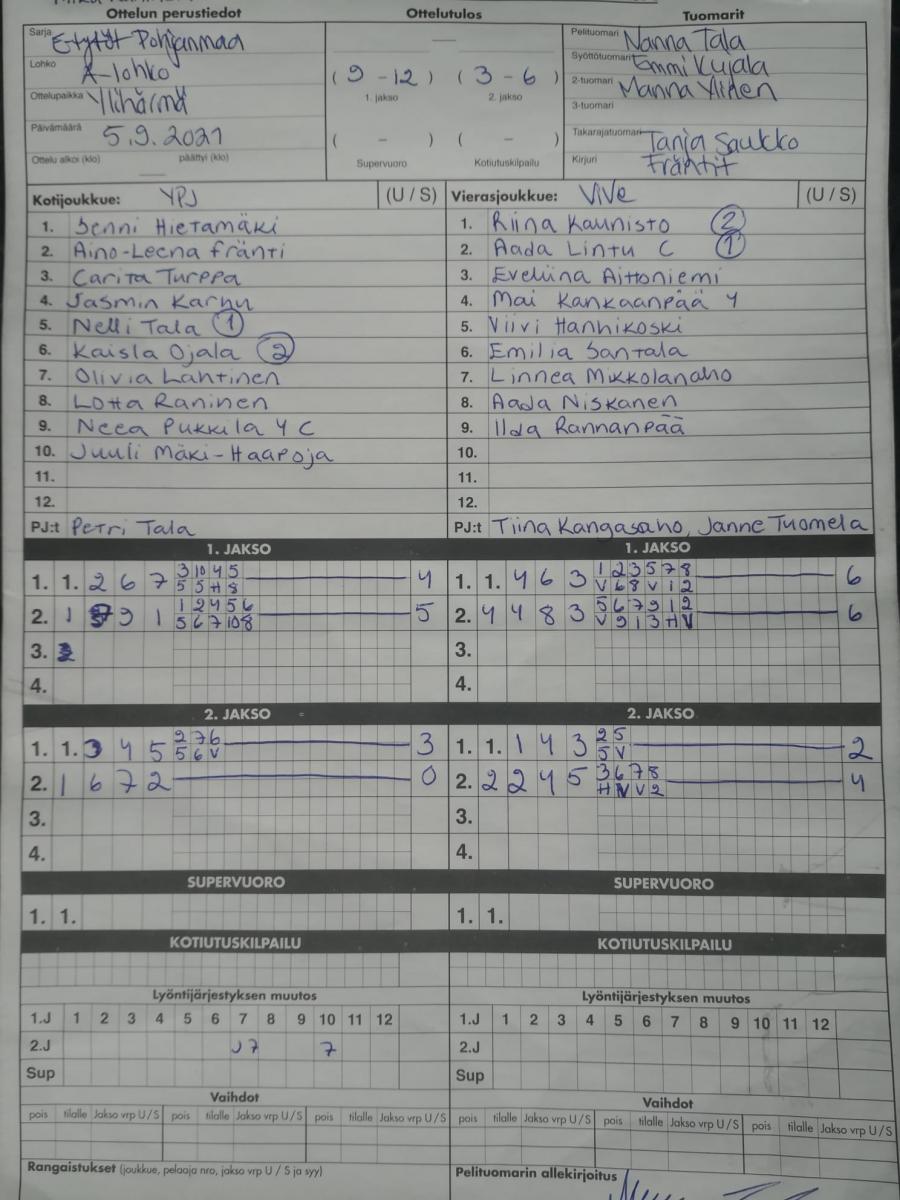 Ottelun perustiedot Ottelutulos Tuomarit
Sarja E-tytöt Pohjanmaa
Lohko A-lohko
Ottelupaikka Ylihärmä
Päivämäärä 5.9.2021
Ottelu alkoi (klo) päättyi (klo)
( 9 - 12 ) ( 3 - 6 )
1. jakso 2. jakso
( - ) ( - )
Supervuoro Kotiutuskilpailu
Pelituomari Nanna Tala
Syöttötuomari Emmi Kujala
2-tuomari Manna Ylinen
3-tuomari
Takarajatuomari Tanja Saukko
Kirjuri Fräntit
Kotijoukkue: YPJ (U / S)
1. Senni Hietamäki
2. Aino-Leena Fränti
3. Carita Turppa
4. Jasmin Karhu
5. Nelli Tala 1
6. Kaisla Ojala 2
7. Olivia Lahtinen
8. Lotta Raninen
9. Neea Pukkila Y C
10. Juuli Mäki-Haapoja
11.
12.
PJ:t Petri Tala
Vierasjoukkue: ViVe (U / S)
1. Riina Kaunisto 2
2. Aada Lintu C 1
3. Eveliina Aittoniemi
4. Mai Kankaanpää Y
5. Viivi Hanhikoski
6. Emilia Santala
7. Linnea Mikkolanaho
8. Aada Niskanen
9. Ilda Rannanpää
10.
11.
12.
PJ:t Tiina Kangasaho, Janne Tuomela
1. JAKSO
1. 1. 2 6 7 3 10 4 5 4
5 5 H 8
2. 1 9 1 1 2 4 5 6 5
5 6 7 10 8
3.
4.
1. JAKSO
1. 1. 4 6 3 1 2 3 5 7 8 6
V 6 8 V 1 2
2. 4 4 8 3 5 6 7 9 1 2 6
V 9 1 3 H V
3.
4.
2. JAKSO
1. 1. 3 4 5 2 7 6 3
5 6 V
2. 1 6 7 2 0
3.
4.
2. JAKSO
1. 1. 1 4 3 2 5 2
5 V
2. 2 2 4 5 3 6 7 8 4
H V V 2
3.
4.
SUPERVUORO SUPERVUORO
1. 1. 1. 1.
KOTIUTUSKILPAILU KOTIUTUSKILPAILU
Lyöntijärjestyksen muutos Lyöntijärjestyksen muutos
1.J 1 2 3 4 5 6 7 8 9 10 11 12 1.J 1 2 3 4 5 6 7 8 9 10 11 12
2.J 7 7 2.J
Sup Sup
Vaihdot Vaihdot
pois tilalle Jakso vrp U / S pois tilalle Jakso vrp U / S pois tilalle Jakso vrp U / S pois tilalle Jakso vrp U / S pois tilalle Jakso vrp U / S pois tilalle Jakso vrp U / S
Rangaistukset (joukkue, pelaaja nro, jakso vrp U / S ja syy) Pelituomarin allekirjoitus